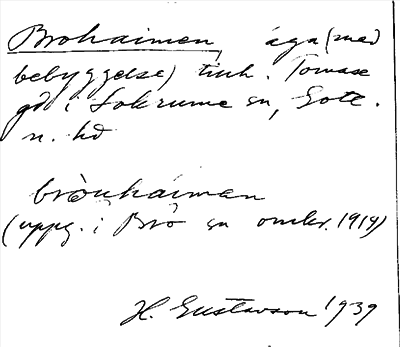 Brohaimen, äga (med
bebyggelse) tillh. Tomase
gd i Lokrume sn, Gotl.
n. hd
bròuhaimen
(uppg. i Bro sn omkr. 1919)
H. Gustavson 1939